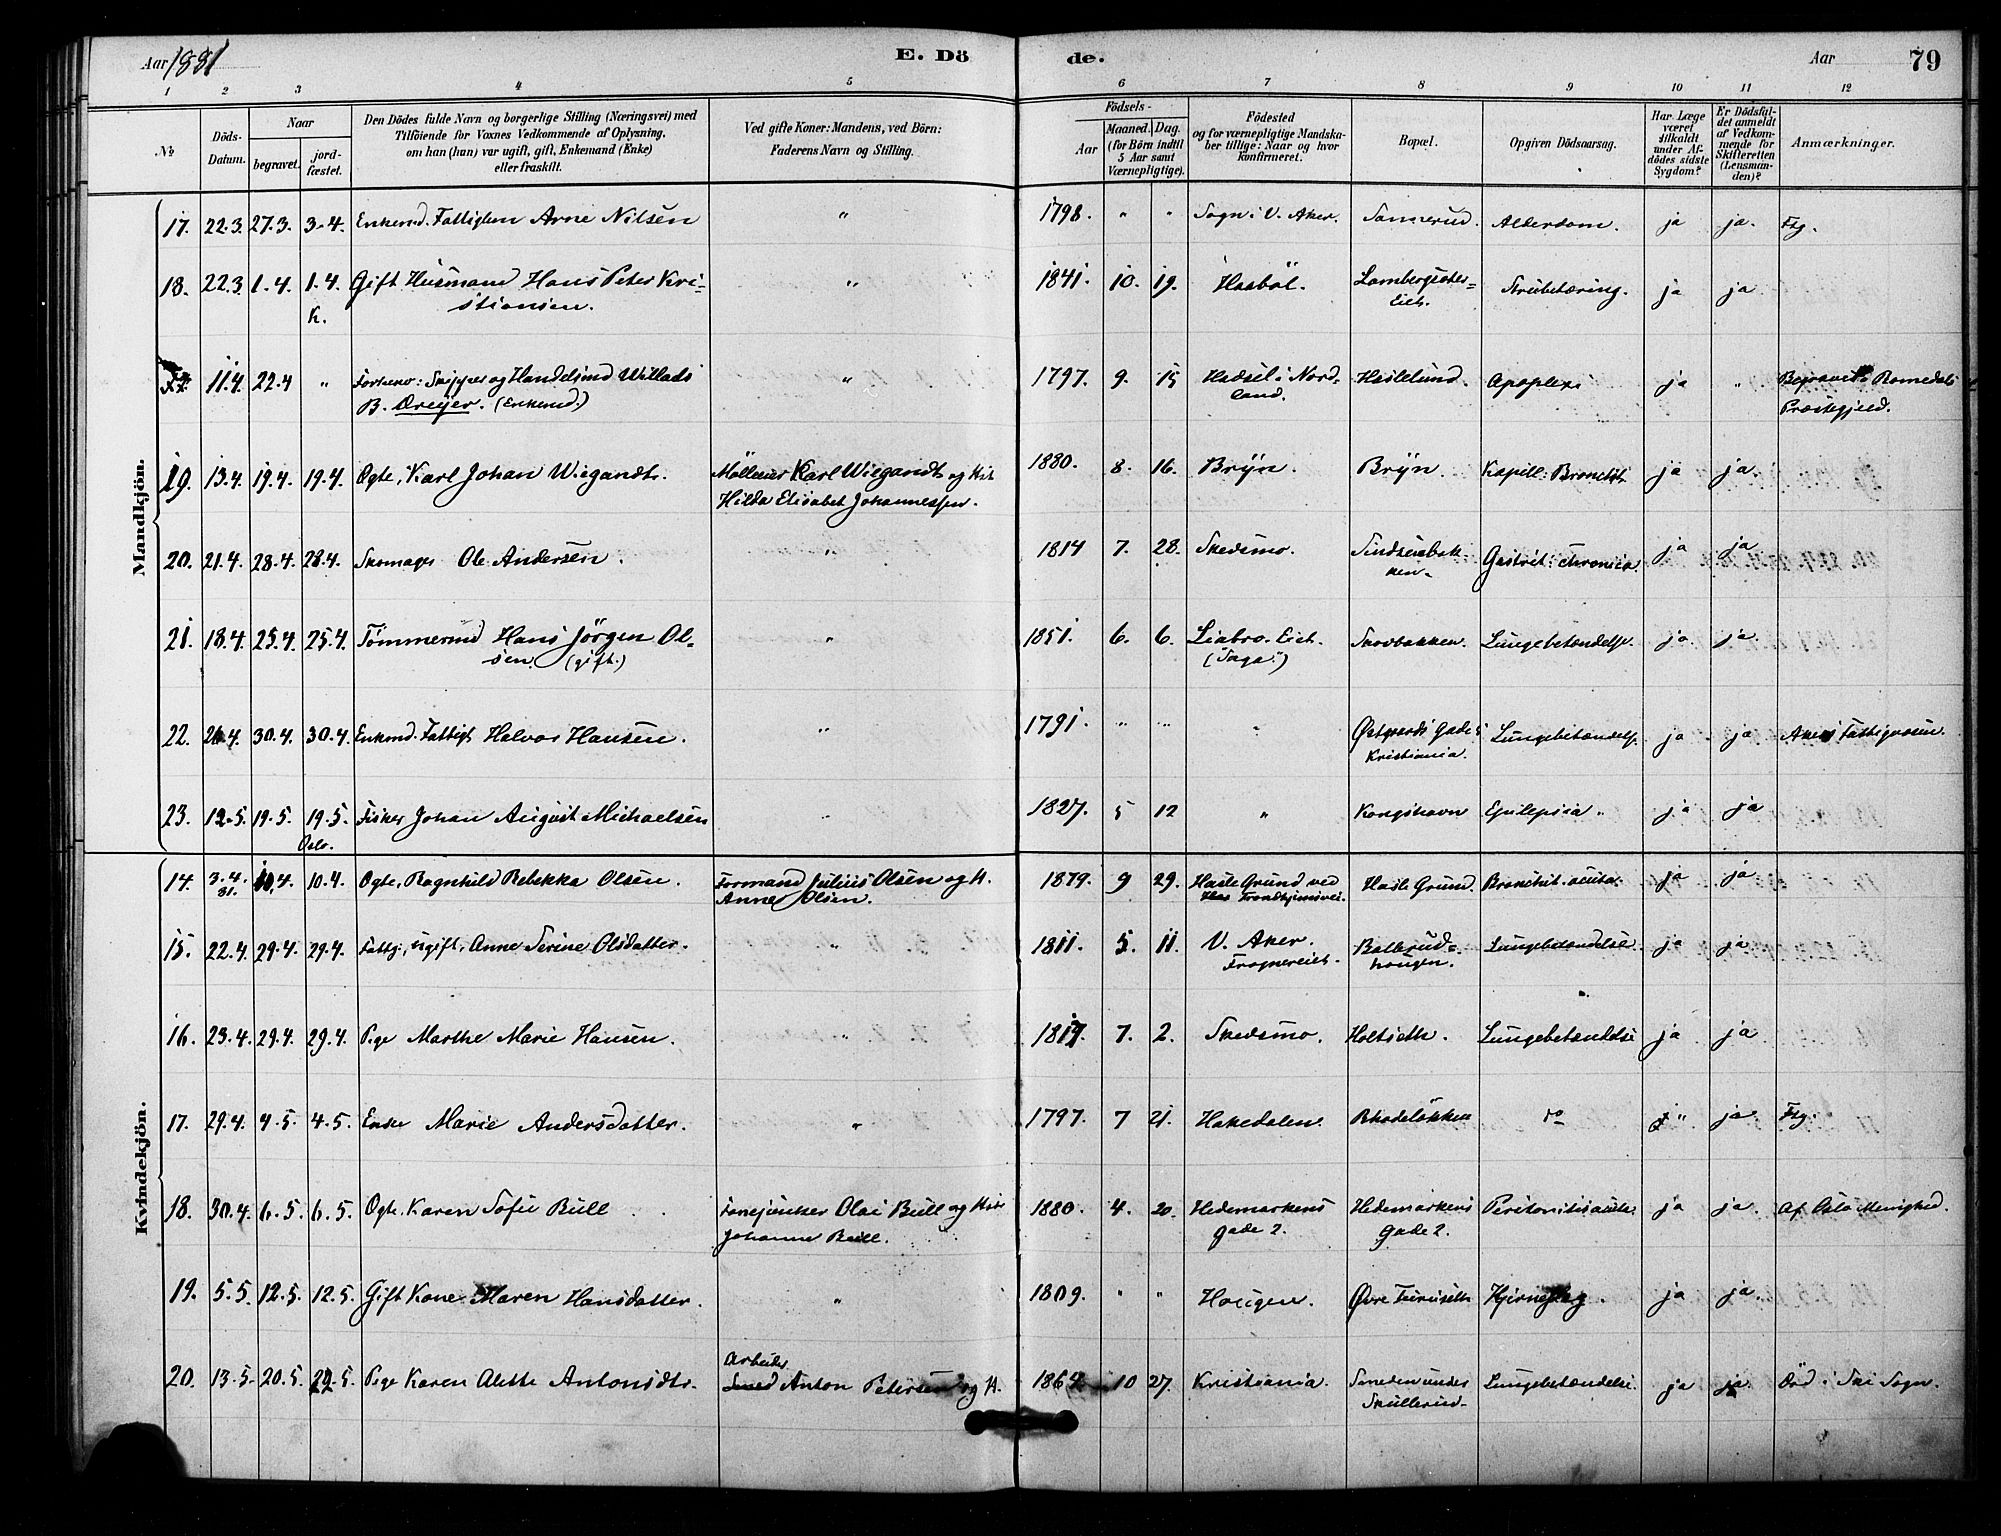 Aar 1881
E. Dö
de.
Aar
79
1 2 3 4 5 6 7 8 9 10 11 12
№
Döds-
Datum.
Naar
begravet.
jord-
fæstet.
Den Dödes fulde Navn og borgerlige Stilling (Næringsvei) med
Tilföiende for Voxnes Vedkommende af Oplysning,
om han (hun) var ugift, gift, Enkemand (Enke)
eller fraskilt.
Ved gifte Koner: Mandens, ved Börn:
Faderens Navn og Stilling.
Födsels-
Aar
Maaned. Dag.
(for Börn indtil
5 Aar samt
Værnepligtige).
Födested
og for værnepligtige Mandska-
ber tillige: Naar og hvor
konfirmeret.
Bopæl.
Opgiven Dödsaarsag.
Har Læge
været
tilkaldt
under Af-
dödes sidste
Sygdom?
Er Dödsfal-
det anmeldt
af Vedkom-
mende for
Skifteretten
(Lensman-
den)?
Anmærkninger.
Mandkjön.
17. 22.3. 27.3. 3.4. Enkemd. Fattiglem Arne Nilsen " 1798. " " Sogn i V. Aker. Sannerud. Alderdom. ja ja. Ftg.
18. 22.3 1.4. 1.4. Gift Husmand Hans Peter Kri- " 1841. 10. 19. Haabøl. Lambergseter= Strubetæring. ja ja
K. stiansen. Eiet.
11.4. 22.4 " Forhenv: Skipper og Handelsmd Willads " 1797. 9. 15 Hadsel i Nord- Haslelund. Apoplexi ja " Begravet i Romedals
B. Dreijer. (Enkemd.) land. Præstegjeld.
19. 13.4. 19.4. 19.4. Ægte, Karl Johan Wiegandt. Møllerier Karl Wiegandt og Hst 1880. 8. 16. Bryn. Bryn. Kapill: Bronchit. ja ja.
Hilda Elisabet Johannessen.
20. 21.4. 28.4. 28.4. Skomager Ole Andersen. " 1814 7. 28. Skedsmo. Sindsenbak- Gastrit: chronica. ja ja
ken.
21. 18.4. 25.4. 25.4. Tømmermd Hans Jörgen Ol- " 1851. 6. 6. Liabro. Eiet. Skovbakken. Lungebetændelse. ja ja
sen. (gift.) ("Saga.")
22. 30.4. 30.4. Enkmd. Fattigl Halvor Hansen. " 1791. " " " Østgaards Gade 5 Lungebetændelse ja ja Akers Fattigvæsen.
Kristiania.
23. 12.5. 19.5. 19.5. Fisker Johan August Michaelsen " 1827. 5 12 " Kongshavn Epilepsia. ja ja
Oslo.
Kvindekjön.
14. 3.4. 10.4. 10.4. Ægte, Ragnhild Rebekka Olsen. Formand Julius Olsen og H. 1879. 9 29. Hasle Grund ved Hasle Grund. Bronchit. acuta. ja ja.
31. Anne Olsen. Trondhjemsvei.
15. 22.4. 29.4. 29.4. Fattg., ugift, Anne Serine Olsdatter. " 1811. 5. 11. V. Aker. Balkerud= Lungebetændelse. ja ja.
Frognereiet. hougen.
16. 23.4. 29.4. 29.4. Pige Marthe Marie Hansen. " 7. 2. Skedsmo. Holtseth. Lungebetændelse ja ja
17. 29.4. 4.5. 4.5. Enke Marie Andersdatter. " 1797. 7 21. Hakedalen. Rhodeløkken do " ja. Ftg.
18. 30.4. 6.5. 6.5. Ægte, Karen Sofie Bull Fanejunker Olai Bull og Hstr 1880. 4. 20. Hedemarkens Hedemarkens Peritonitis acuta. ja ja. Af Oslo Menighed.
Johanne Bull. gade 2. gade 2.
19. 5.5. 12.5. 12.5. Gift Kone Maren Hansdatter. " 1809. " " Hougen. Øvre Furuseth Hjerneslag. ja ja.
20. 13.5. 20.5. Pige Karen Alette Antonsdtr. Arbeider
Smed Anton Petersen og H. 1864 10 27. Kristiania. Smeden under Lungebetændelse. ja ja. Død i Ski Sogn.
Skullerud.